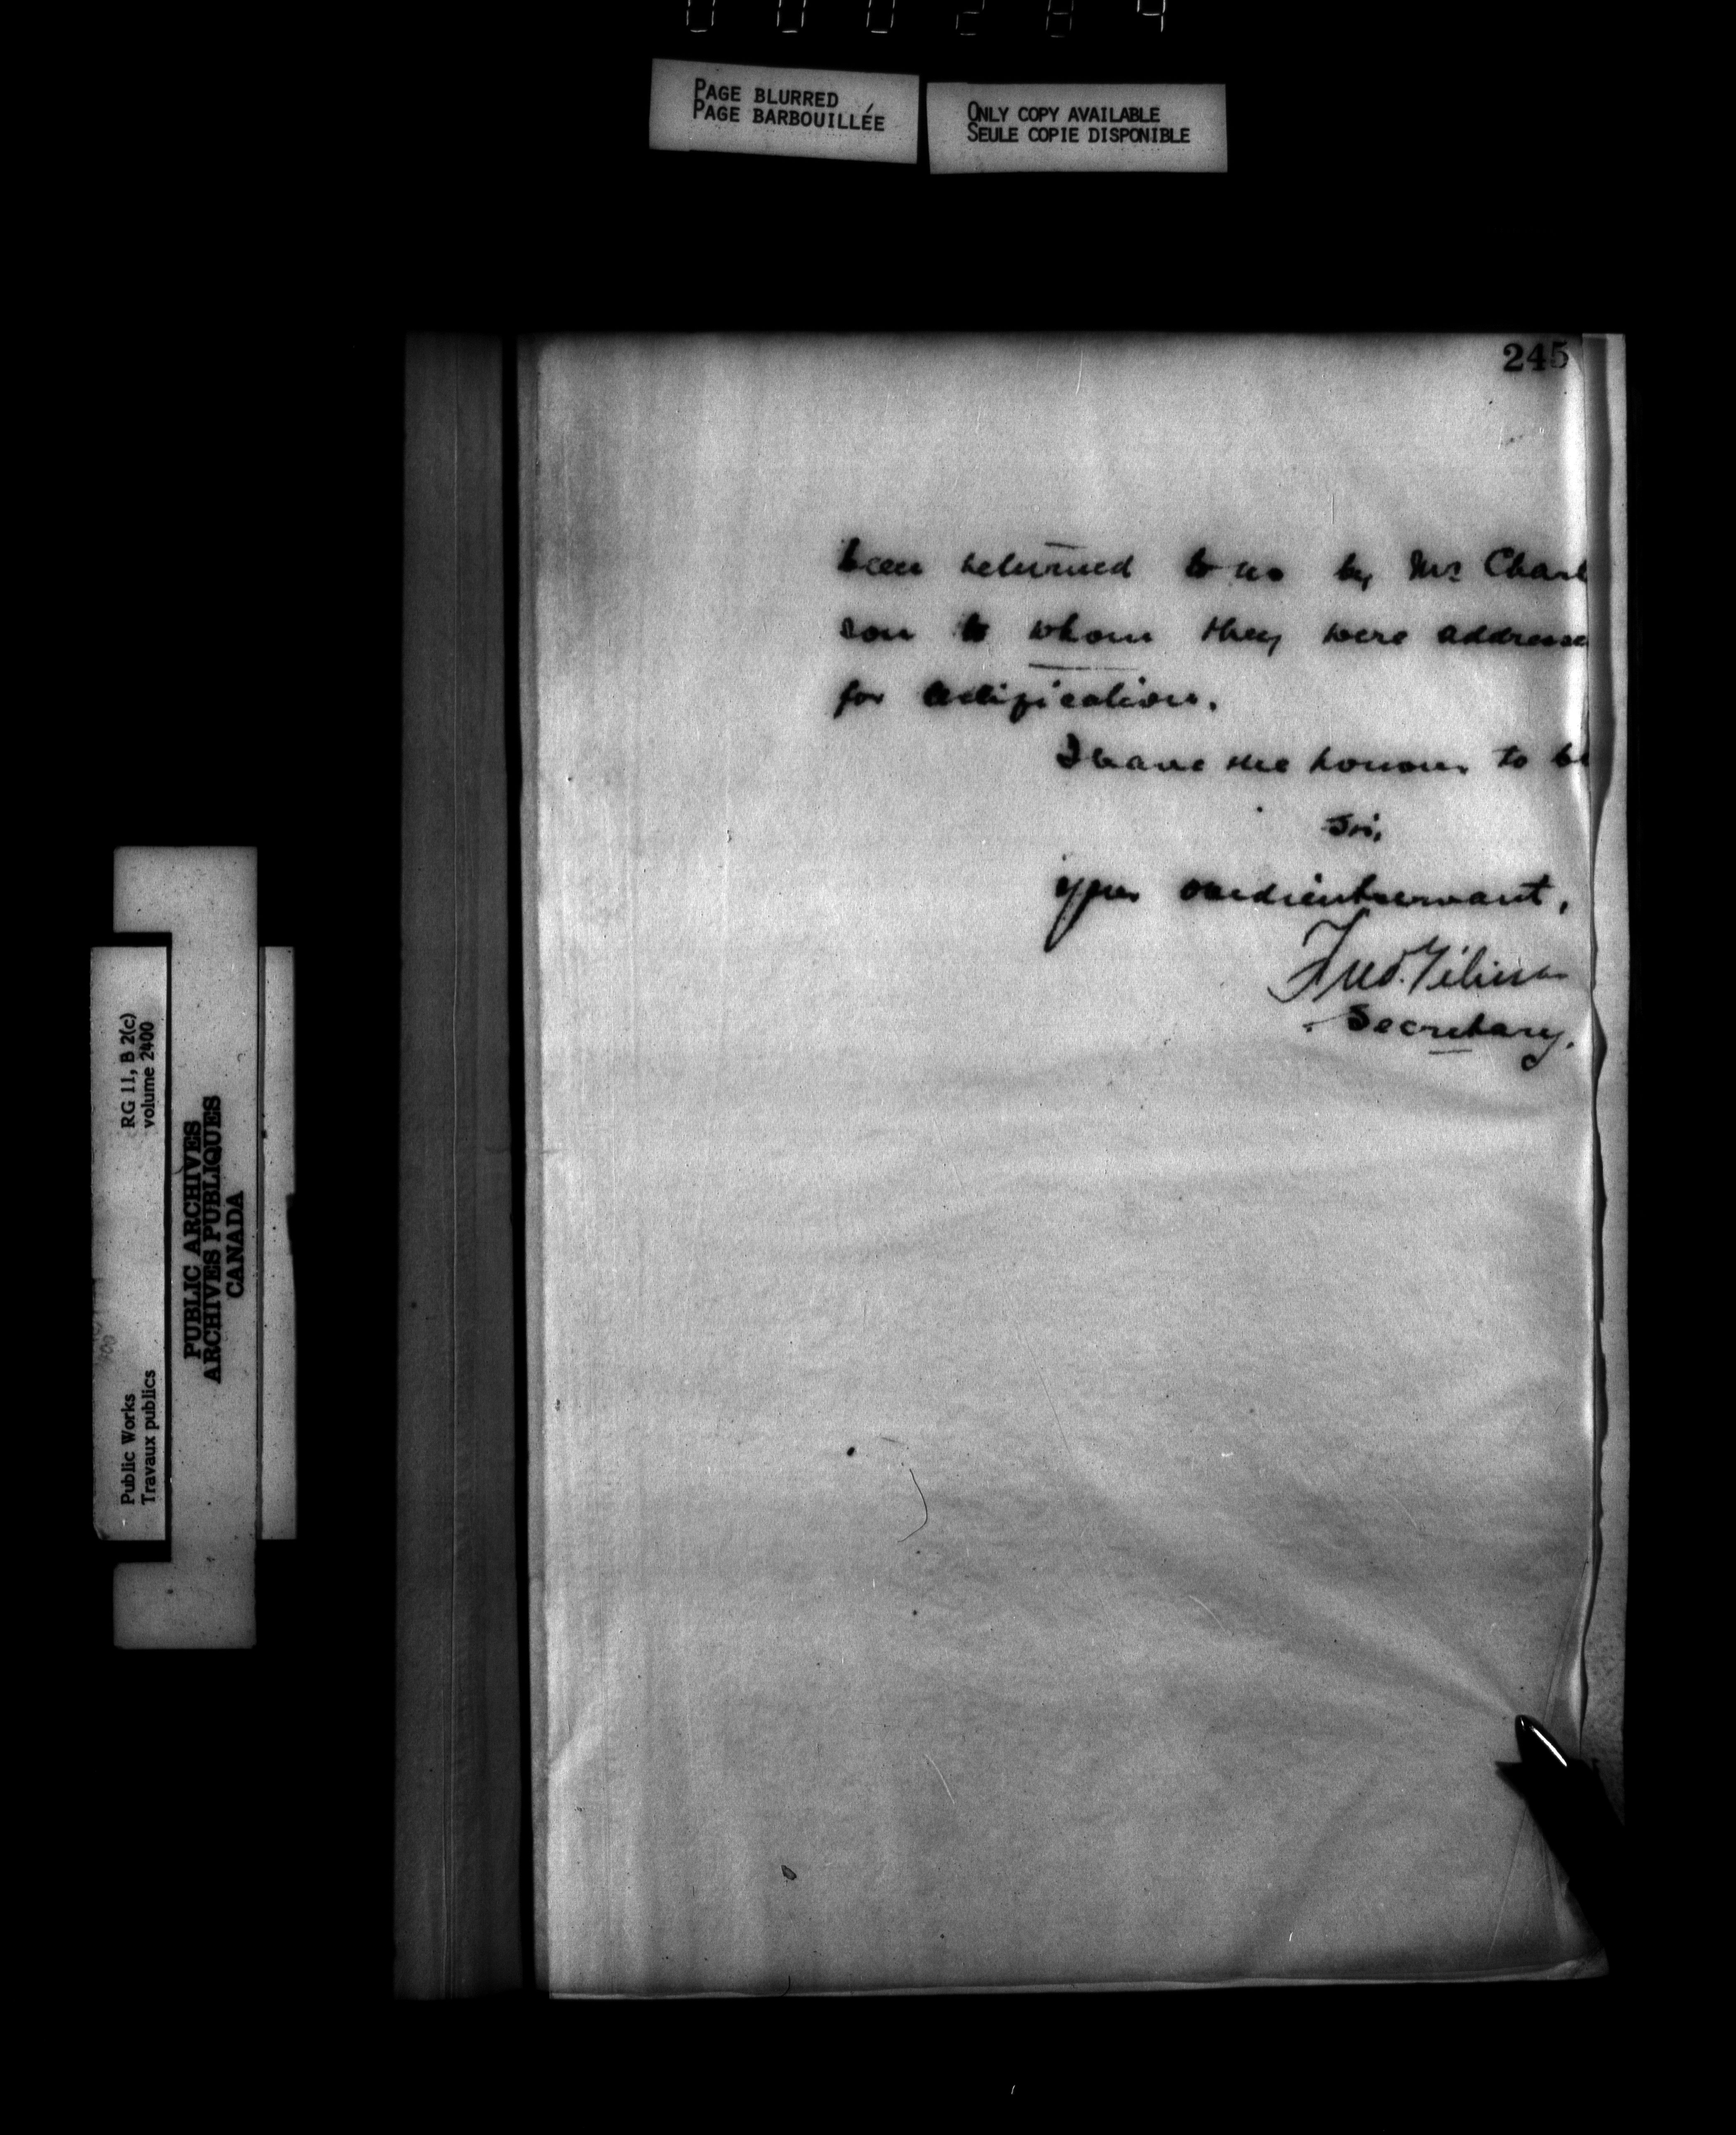 000284
PAGE BLURRED
PAGE BARBOUILLÉE
ONLY COPY AVAILABLE
SEULE COPIE DISPONIBLE
245
been returned to us by Mr Charl
son to whom they were addresse
for
I have the honour to be
Sir,
your obedient servant,
Fred. Gélinas
Secretary.
RG 11, B 2(c)
volume 2400
PUBLIC ARCHIVES
ARCHIVES PUBLIQUES
CANADA
Public Works
Travaux publics